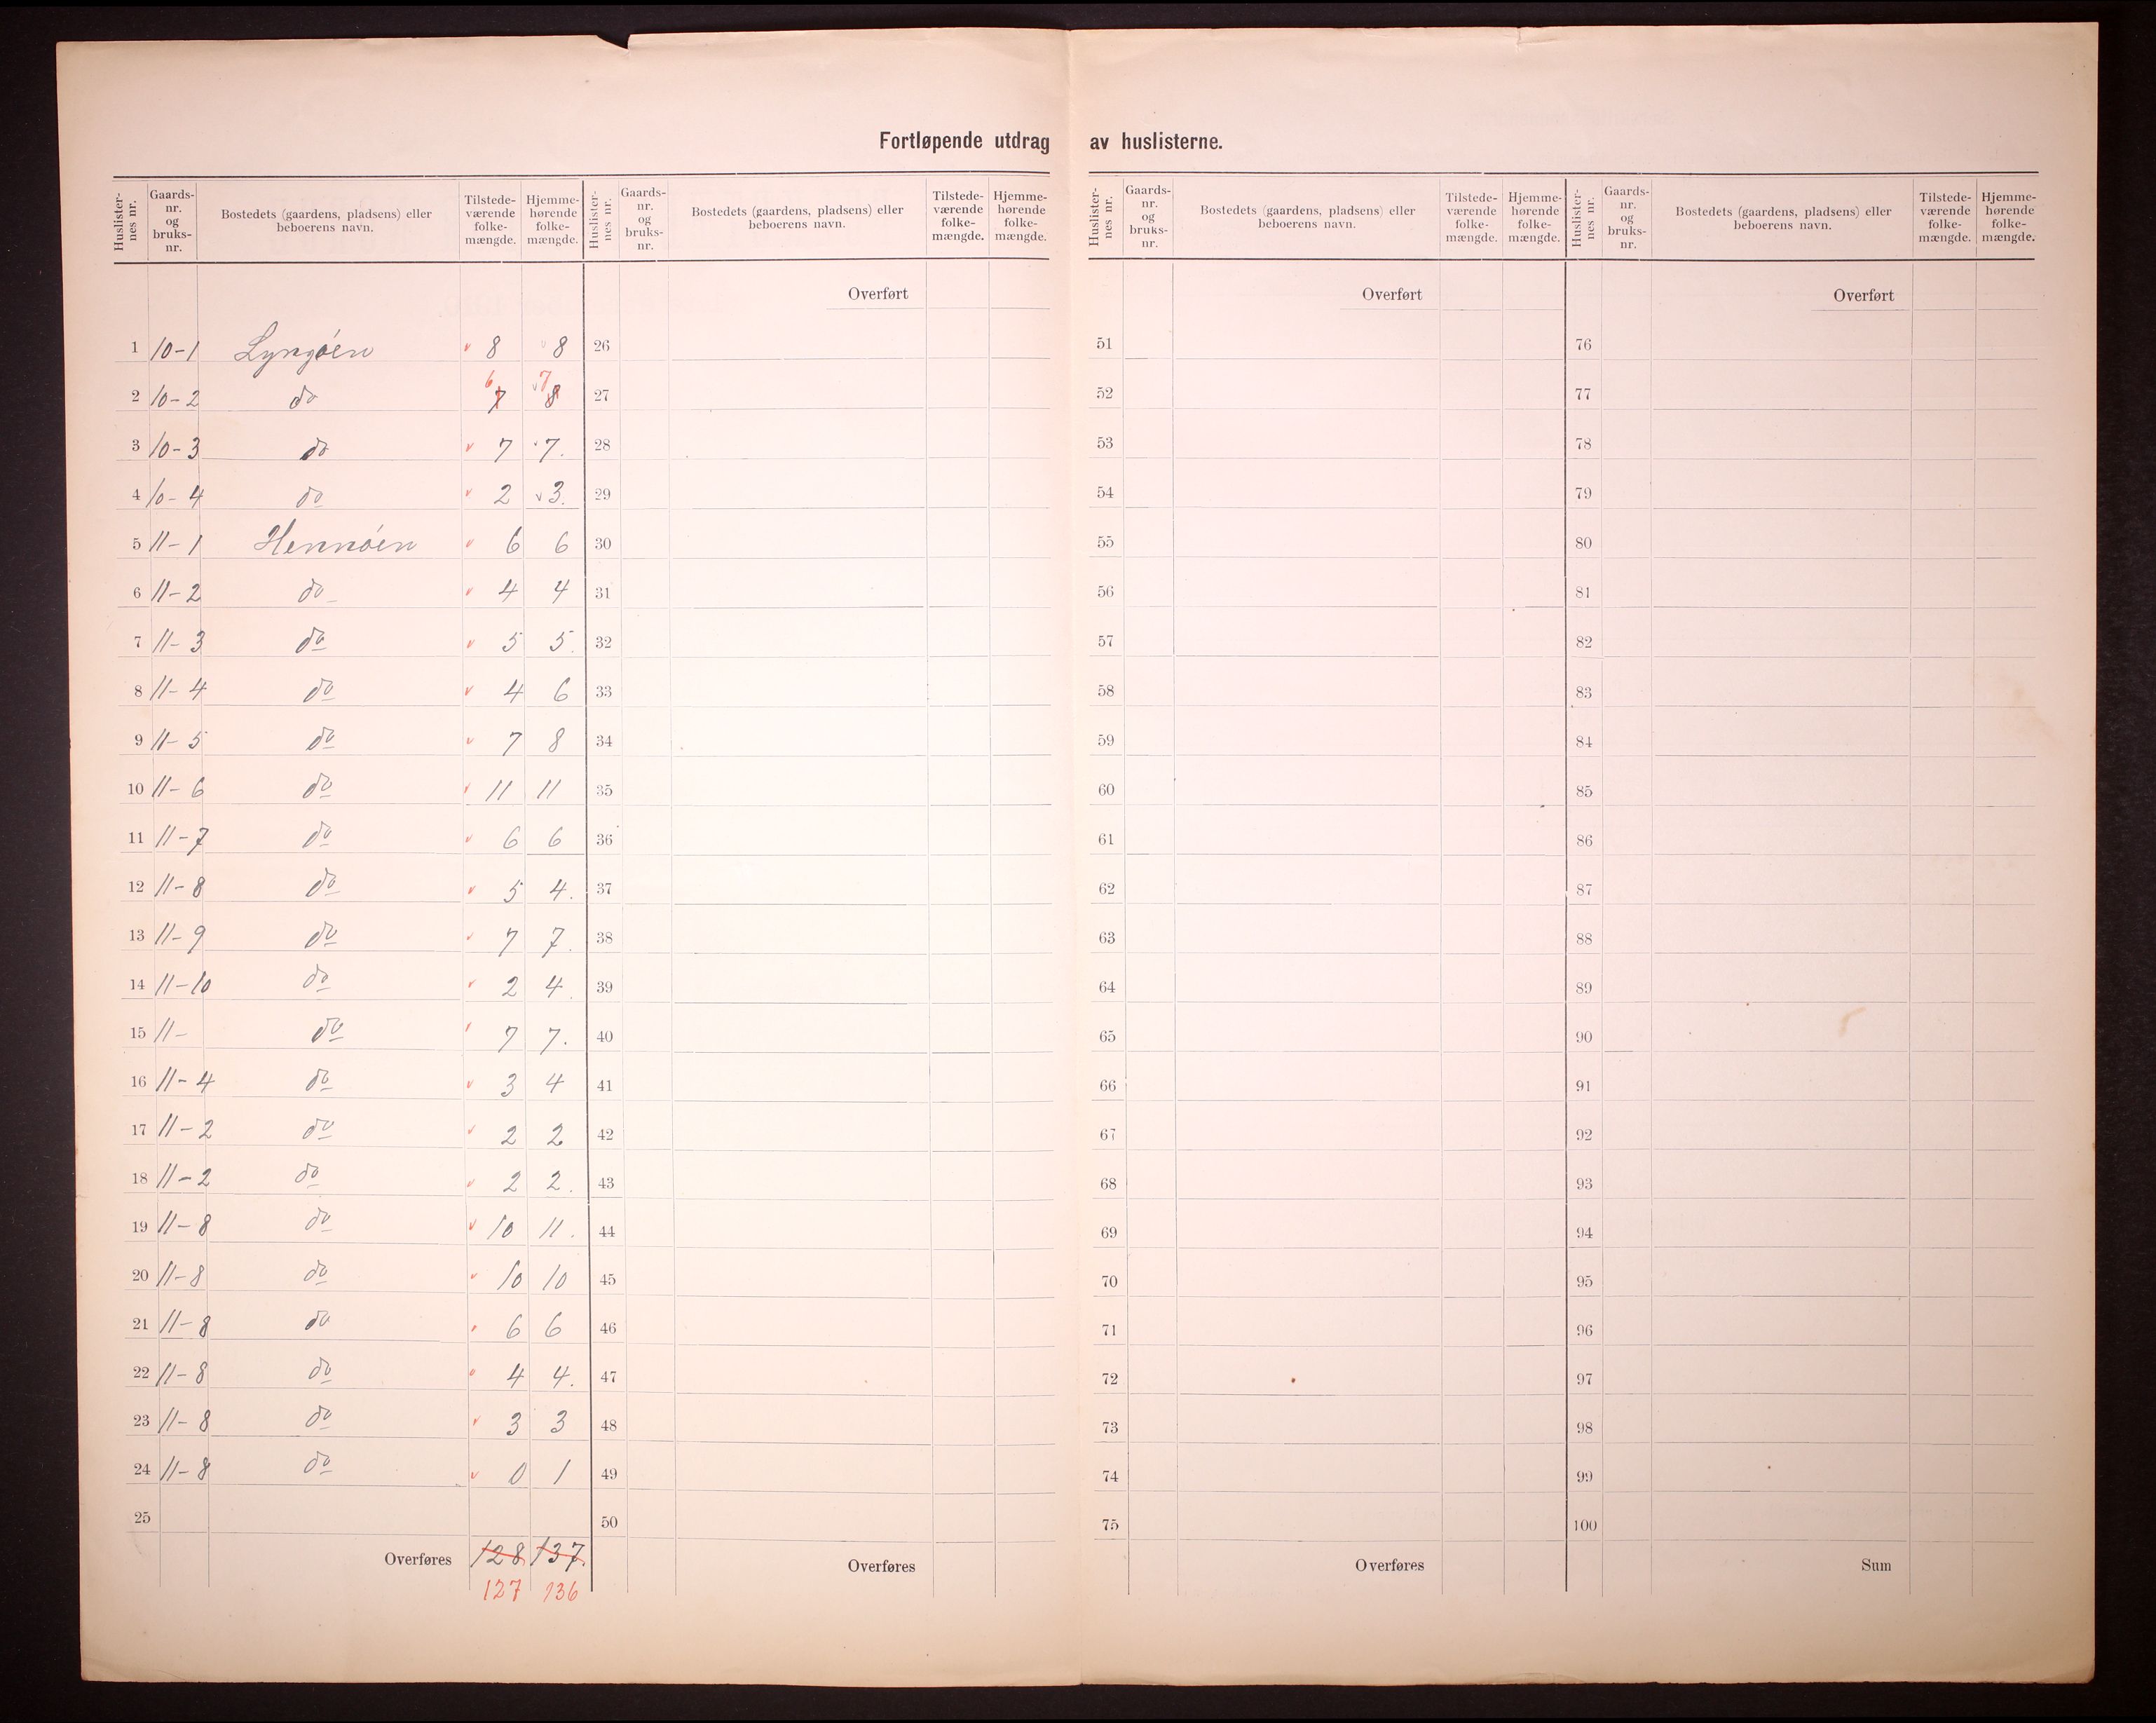 Fortløpende utdrag av huslisterne.
Huslister-nes nr. Gaards-nr. og bruks-nr. Bostedets (gaardens, pladsens) eller beboerens navn. Tilstede-værende folke-mængde. Hjemme-hørende folke-mængde. Huslister-nes nr. Gaards-nr. og bruks-nr. Bostedets (gaardens, pladsens) eller beboerens navn. Tilstede-værende folke-mængde. Hjemme-hørende folke-mængde. Huslister-nes nr. Gaards-nr. og bruks-nr. Bostedets (gaardens, pladsens) eller beboerens navn. Tilstede-værende folke-mængde. Hjemme-hørende folke-mængde. Huslister-nes nr. Gaards-nr. og bruks-nr. Bostedets (gaardens, pladsens) eller beboerens navn. Tilstede-værende folke-mængde. Hjemme-hørende folke-mængde.
Overført Overført Overført
1 10-1 Lyngöen 8 8 26 51 76
2 10-2 do 6 7 7 8 27 52 77
3 10-3 do 7 7. 28 53 78
4 10-4 do 2 3. 29 54 79
5 11-1 Hennöen 6 6 30 55 80
6 11-2 do 4 4 31 56 81
7 11-3 do 5 5. 32 57 82
8 11-4 do 4 6 33 58 83
9 11-5 do 7 8 34 59 84
10 11-6 do 11 11 35 60 85
11 11-7 do 6 6 36 61 86
12 11-8 do 5 4. 37 62 87
13 11-9 do 7 7. 38 63 88
14 11-10 do 2 4. 39 64 89
15 11- do 7 7. 40 65 90
16 11-4 do 3 4 41 66 91
17 11-2 do 2 2 42 67 92
18 11-2 do 2 2. 43 68 93
19 11-8 do 10 11. 44 69 94
20 11-8 do 10 10 45 70 95
21 11-8 do 6 6 46 71 96
22 11-8 do 4 4. 47 72 97
23 11-8 do 3 3 48 73 98
24 11-8 do 0 1 49 74 99
25 50 75 100
Overføres 128 137 Overføres Overføres Sum
127 136